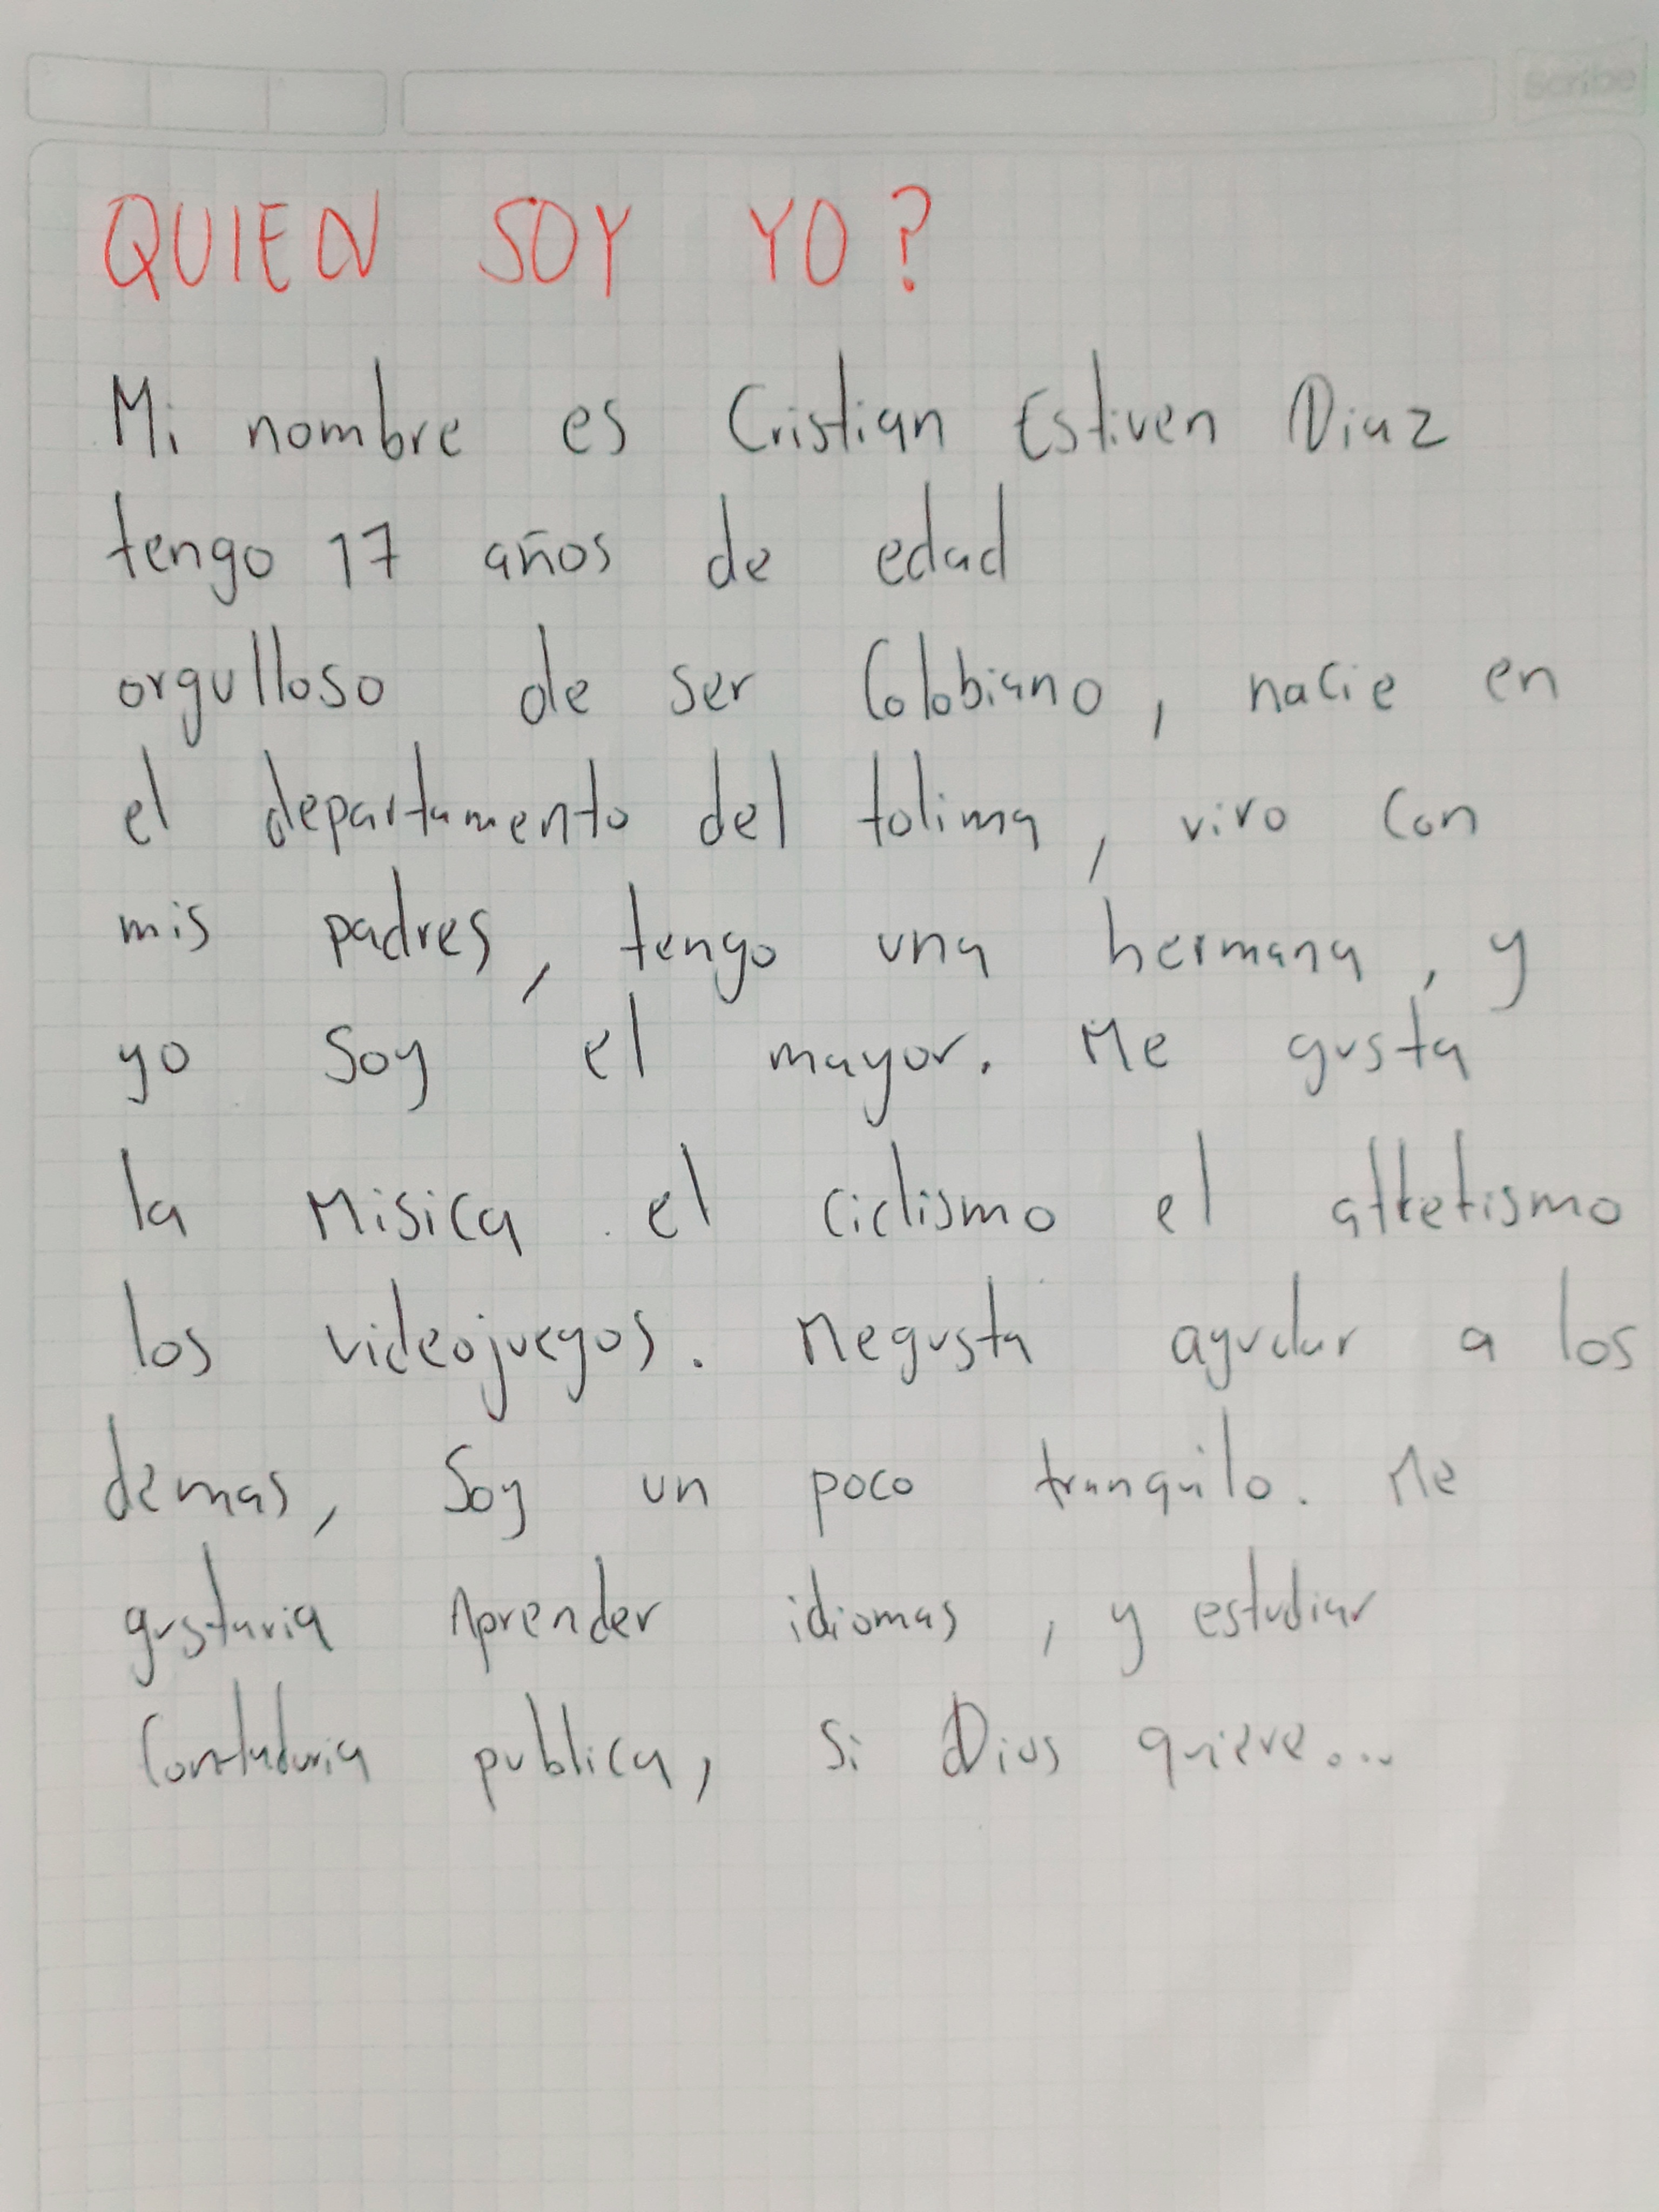 Scribe
QUIEN SOY YO?
Mi nombre es Cristian Estiven Diaz
tengo 17 años de edad
orgulloso de ser Colobiano, nacie en
el departamento del tolima, vivo con
mis padres, tengo una hermana, y
yo soy el mayor. Me gusta
la Misica el ciclismo el atletismo
los videojuegos. Megusta ayudar a los
demas, Soy un poco tranquilo. Me
gustaria Aprender idiomas, y estudiar
Contaduria publica, si Dios quiere...